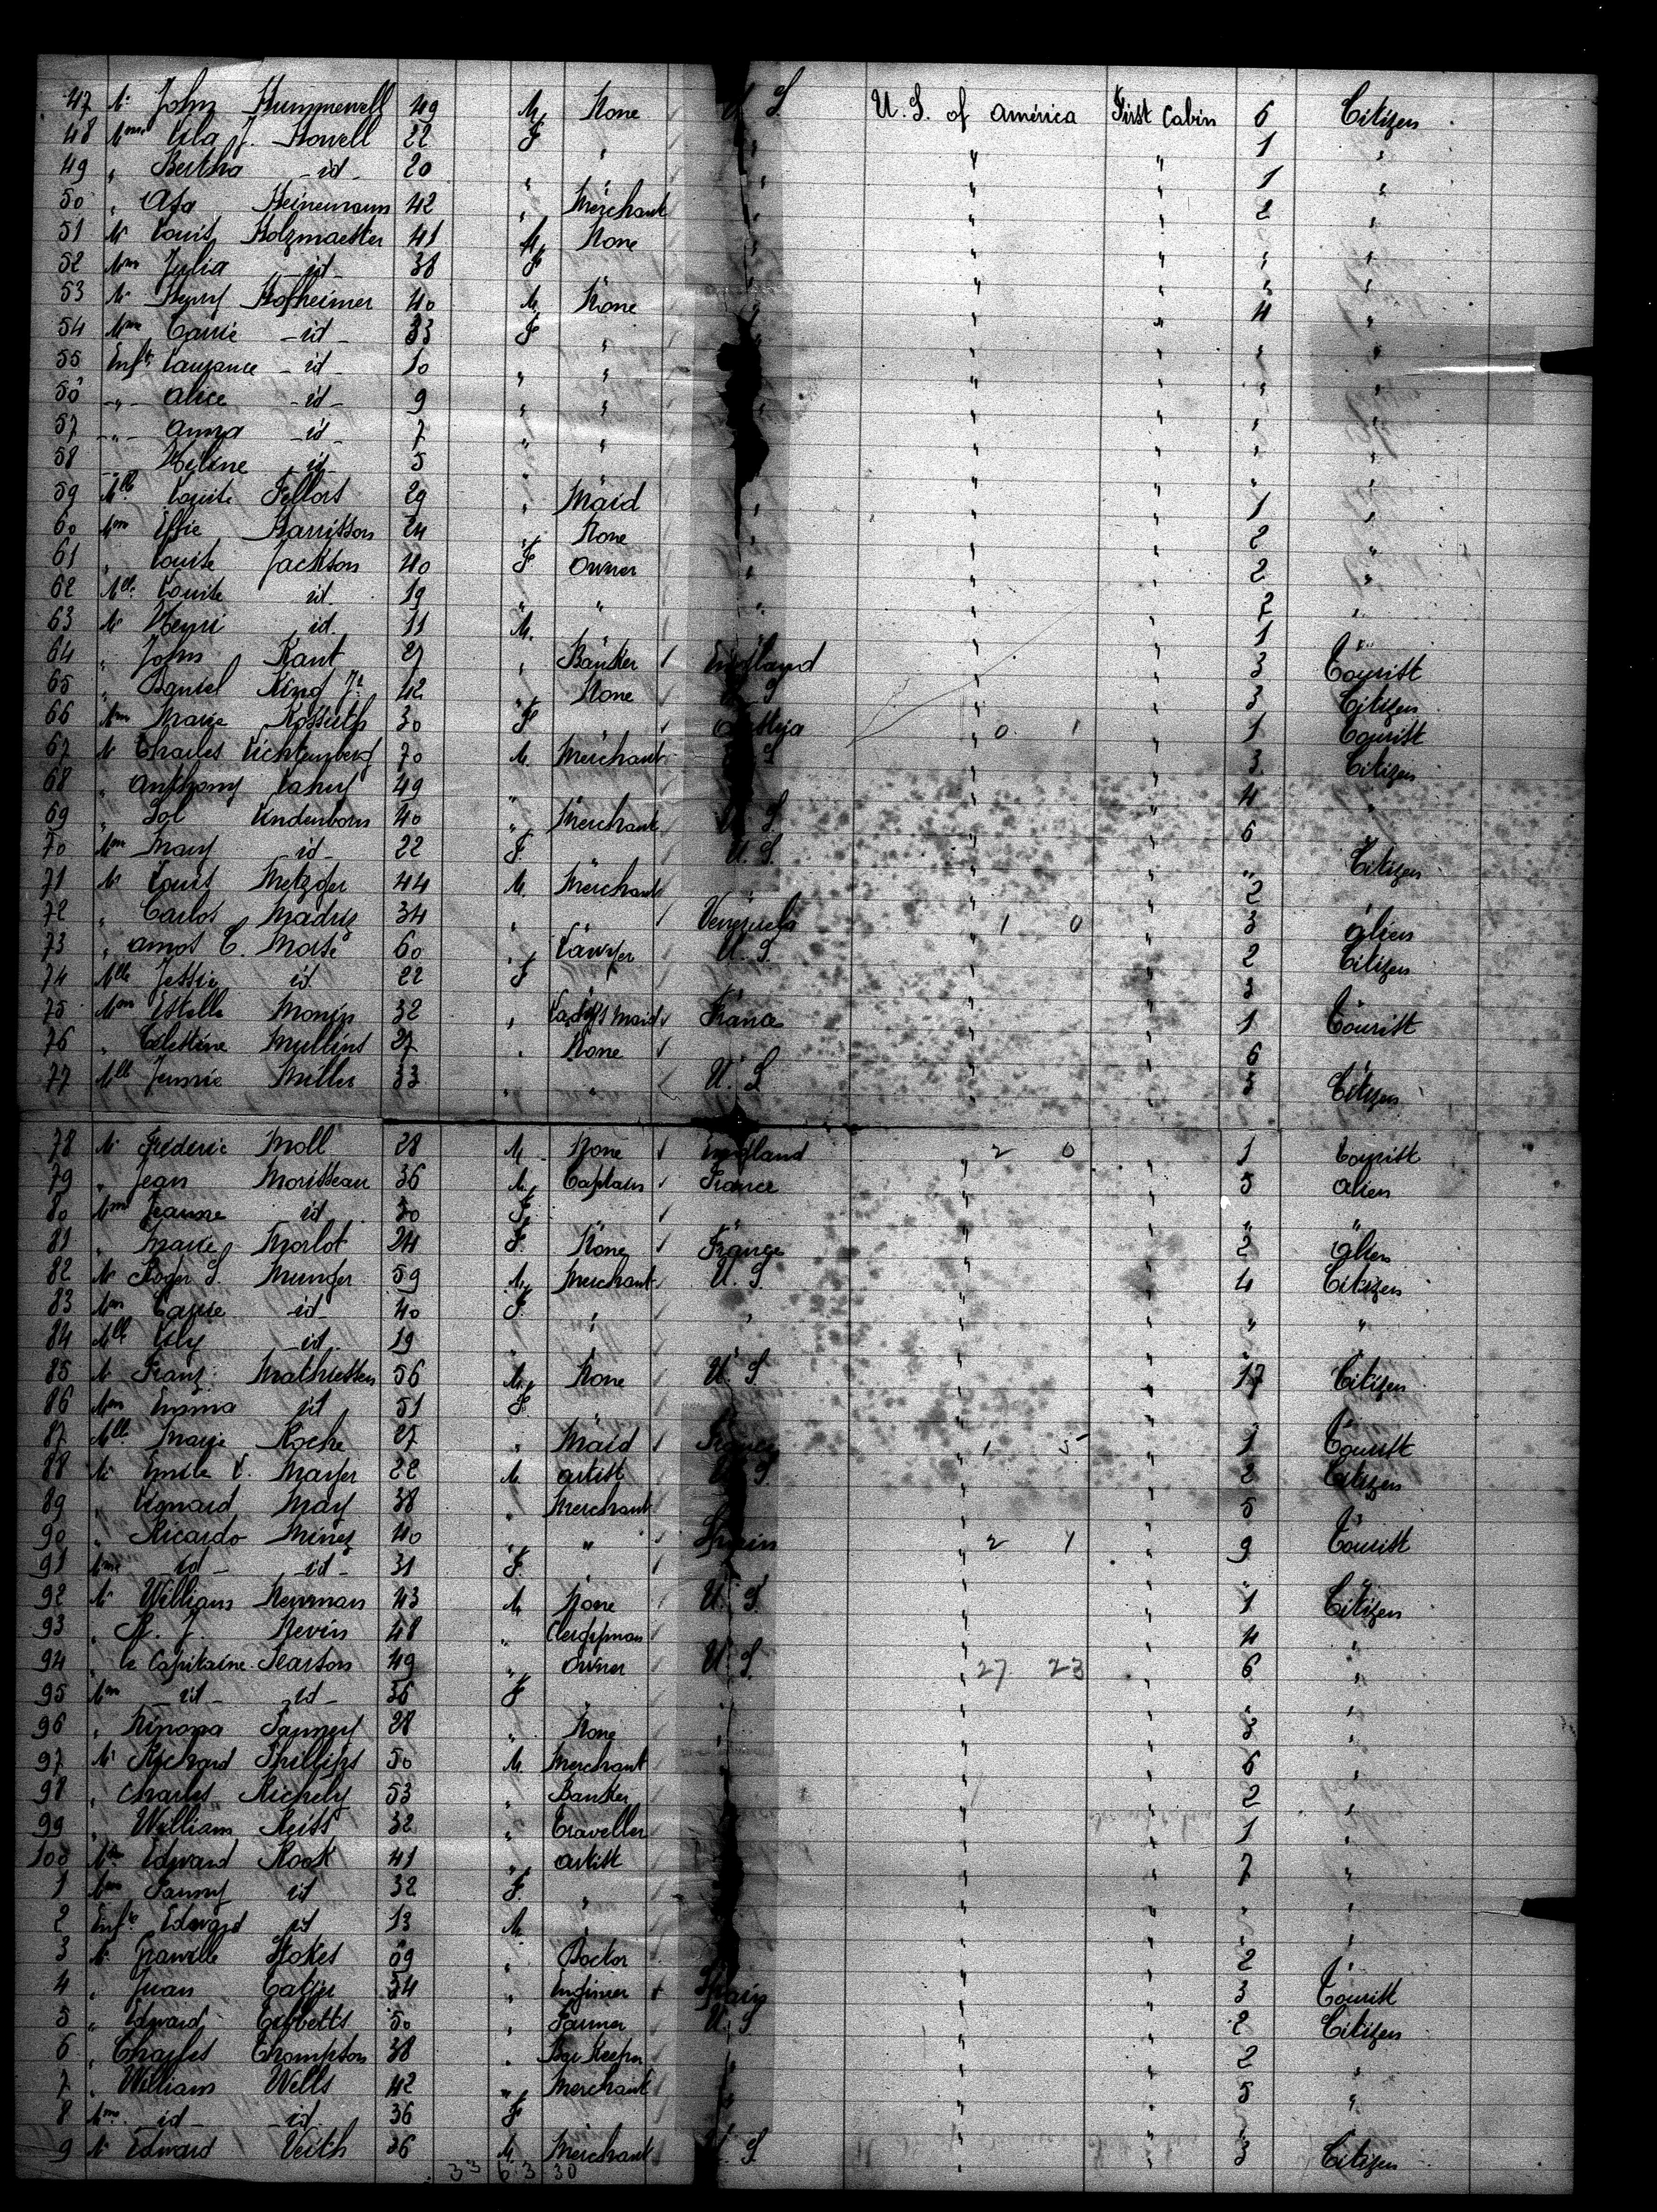 47 Mr John Hummewell 49 M. None U. S U. S. of América First Cabin 6 Citizen
48 Mme Lila J. Howell 22 F " " " " 1 "
49 " Bertha - id - 20 " " " " 1 "
50 " Heinemann 42 " Merchant " " " 2 "
51 Mr Louis Holzmaester 41 M. None " " " " "
52 Mme Julia - id - 38 F " " " "
53 Mr Henry Hofheimer 40 M. None " " " 4 "
54 Mme Carrie - id - 33 F " " " " " "
55 Enft Laurance - id - 10 " " " " " "
56 - " - Alice - id - 9 " " " " " "
57 - " - Anna - id - 7 " " " " " "
58 Hélène id 5 " " " " "
59 Mlle Louise 29 " Maid " " " 1 "
60 Mme Effie Harrisson 24 " None " " " 2 "
61 " Louise Jackson 40 F Owner " " " 2 "
62 Mlle Louise id. 19 " " " " " 2 "
63 Mr Henri id. 11 M. " " 1 "
64 " John Kant 27 " Banker England " " 3 Tourist
65 " Daniel King Jr 42 " None U. S " " 3 Citizen
66 Mme Marie Kossuth 30 F Austria " 0 1 " 1 Tourist
67 Mr Charles Lichtenberg 70 M. Merchant U. S " " 3 Citizen
68 " Anthony Lahey 49 " " " 4 "
69 " Sol Lindenborn 40 " Merchant U. S " " 6
70 Mme Mary - id - 22 F. U. S. " " " Citizen
71 Mr Louis Metzger 44 M. Merchant " " 2 "
72 " Carlos Madriz 34 " " Venezuela " 1 0 " 3 Alien
73 " Amos C. Morse 60 " Lawyer U. S. " " 2 Citizen
74 Mlle Jessie id. 22 F " " 2 "
75 Mme Estelle Monin 32 " Lady's maid France " " 1 Tourist
76 " Célestine Mullins 27 " None " " " 6 "
77 Mlle Jennie Miller 33 " " U. S " " 3 Citizen
78 Mr Fréderic Moll 28 M. None England " 2 0 " 1 Tourist
79 " Jean Morisseau 36 M. Captain France " " 5 Alien
80 Mme Jeanne id 30 F. " " " " "
81 " Marie Morlot 24 F. None France " " 2 Alien
82 Mr Roger S. Munger 59 M. Merchant U. S " " 4 Citizen
83 Mme Carrie id 40 F. " " " " " "
84 Mlle Lily - id - 19 " " " " "
85 Mr Franz Mathiessen 56 M. None U. S " " 17 Citizen
86 Mme Emma id 51 F. " " " "
87 Mlle Marie Roche 27 " Maid France " 1 5 " 1 Tourist
88 Mr Emile L. Mayer 22 M. artist U. S " " 2 Citizen
89 " Léonard May 38 " Merchant " " 5 "
90 " Ricardo Minez 40 " " Spain " 2 1 " 9 Tourist
91 Mme - id - - id - 31 F. " " " " "
92 Mr William Newman 43 M. None U. S. " " 1 Citizen
93 " R. J. Nevin 48 " Clergyman " " 4 "
94 " le Capitaine Pearson 49 " Owner U. S " 27 23 " 6 "
95 Mme - id - - id - 36 F " " " " "
96 " Fanney 28 " None " " 3 "
97 Mr Richard Phillips 50 M. Merchant " " 6 "
98 " Charles 53 " Banker " " 2 "
99 " William Reiss 32 " Traveller " " 1 "
100 Mr Edward Rook 41 " artist " " 7 "
1 Mme Fanny id 32 F. " " " " "
2 Enft Edward id 13 M. " " " " "
3 Mr Granville Stokes 59 " Doctor " " 2 "
4 " Juan 34 " Engineer Spain " " 3 Tourist
5 " Edward Tibbetts 50 " Farmer U. S " " 2 Citizen
6 " Charles Thompson 38 " Keeper " " " 2 "
7 " William Wells 42 " Merchant " " " 5 "
8 Mme - id - - id - 36 F " " " "
9 Mr Edward Veith 36 M. Merchant U. S " " 3 Citizen
33 63 30